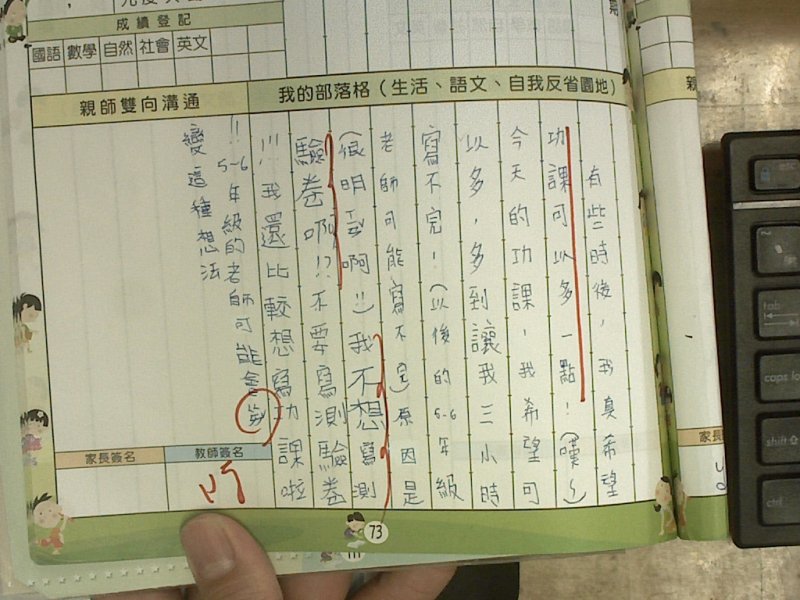 成績登記
國語 數學 自然 社會 英文
親師雙向溝通
我的部落格（生活、語文、自我反省園地）
有些時後，我真希望
功課可以多一點！(嘆~)
今天的功課，我希望可
以多，多到讓我三小時
寫不完！(以後的5-6年級
老師可能寫不完)原因是
(很明啊!!)我不想寫測
驗卷啊!?不要寫測驗卷
!!!我還比較想寫功課啦
!!5-6年級的老師可能會
變這種想法
家長簽名
教師簽名
73
家長
tab
caps lo
shift
ctrl